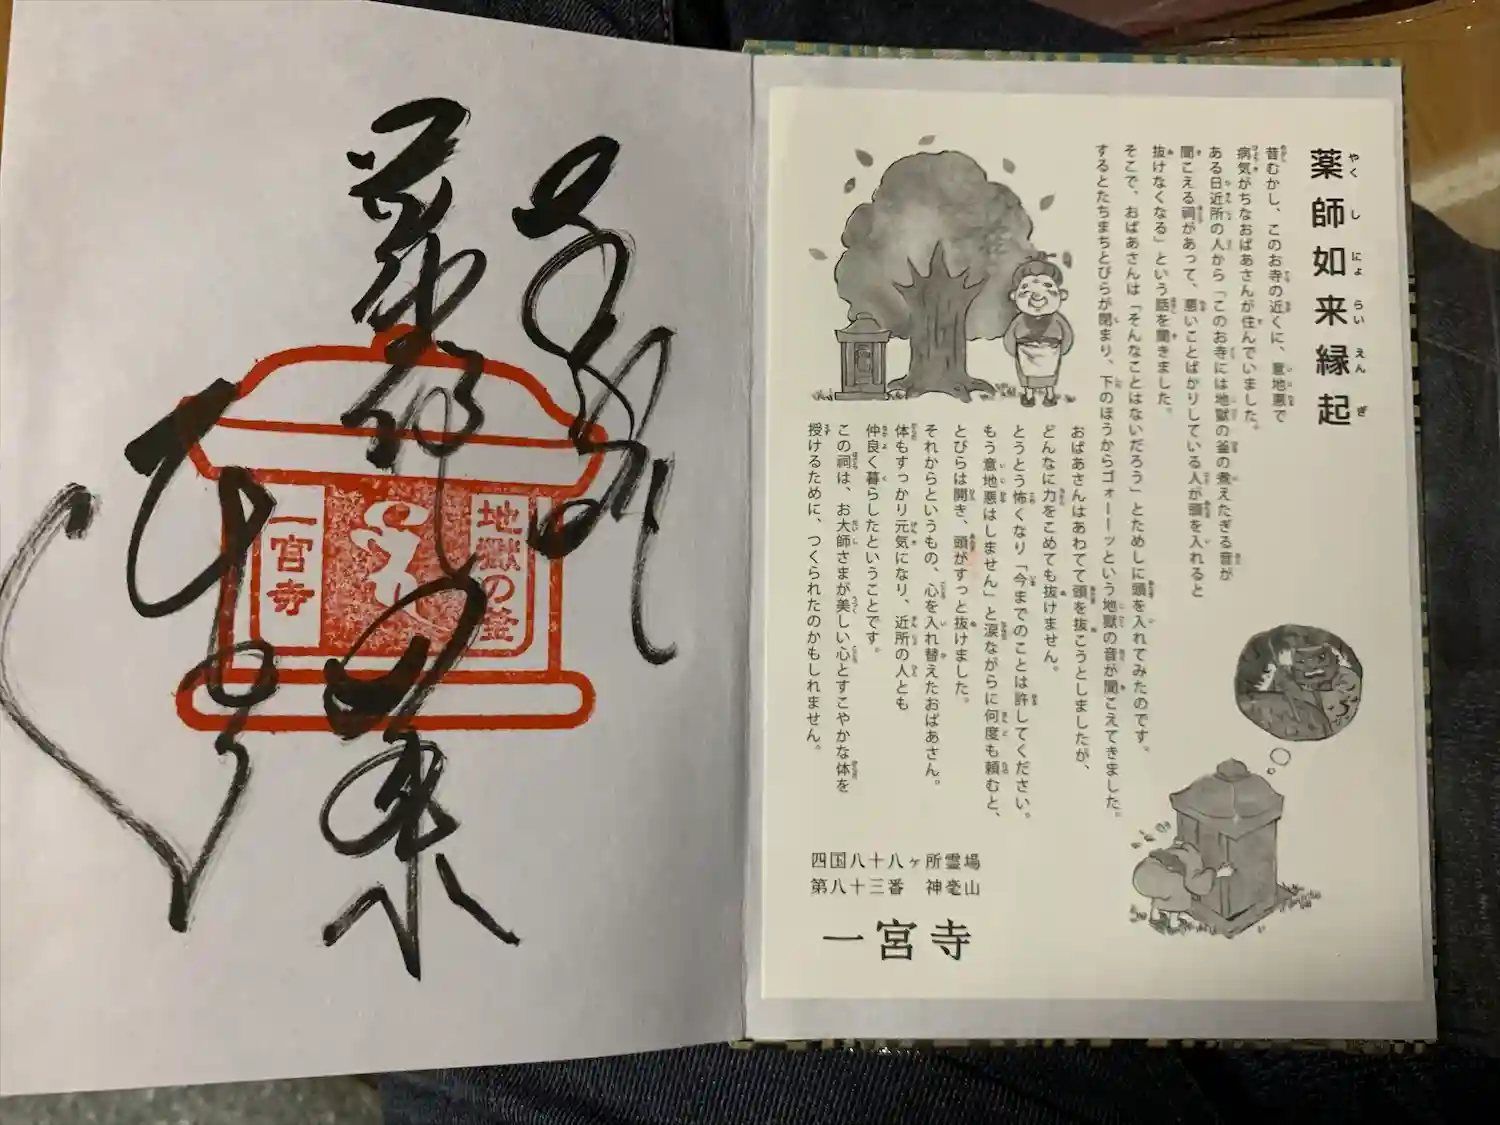 薬師如来縁起
昔むかし、このお寺の近くに、意地悪で
病気がちなおばあさんが住んでいました。
ある日近所の人から「このお寺には地獄の釜の煮えたぎる音が
聞こえる祠があって、悪いことばかりしている人が頭を入れると
抜けなくなる」という話を聞きました。
そこで、おばあさんは「そんなことはないだろう」とためしに頭を入れてみたのです。
するとたちまちとびらが閉まり、下のほうからゴォーーッという地獄の音が聞こえてきました。
おばあさんはあわてて頭を抜こうとしましたが、
どんなに力をこめても抜けません。
とうとう怖くなり「今までのことは許してください。
もう意地悪はしません」と涙ながらに何度も頼むと、
とびらは開き、頭がすっと抜けました。
それからというもの、心を入れ替えたおばあさん。
体もすっかり元気になり、近所の人とも
仲良く暮らしたということです。
この祠は、お大師さまが美しい心とすこやかな体を
授けるために、つくられたのかもしれません。
四国八十八ヶ所霊場
第八十三番　神毫山
一宮寺
地獄の釜
一宮寺